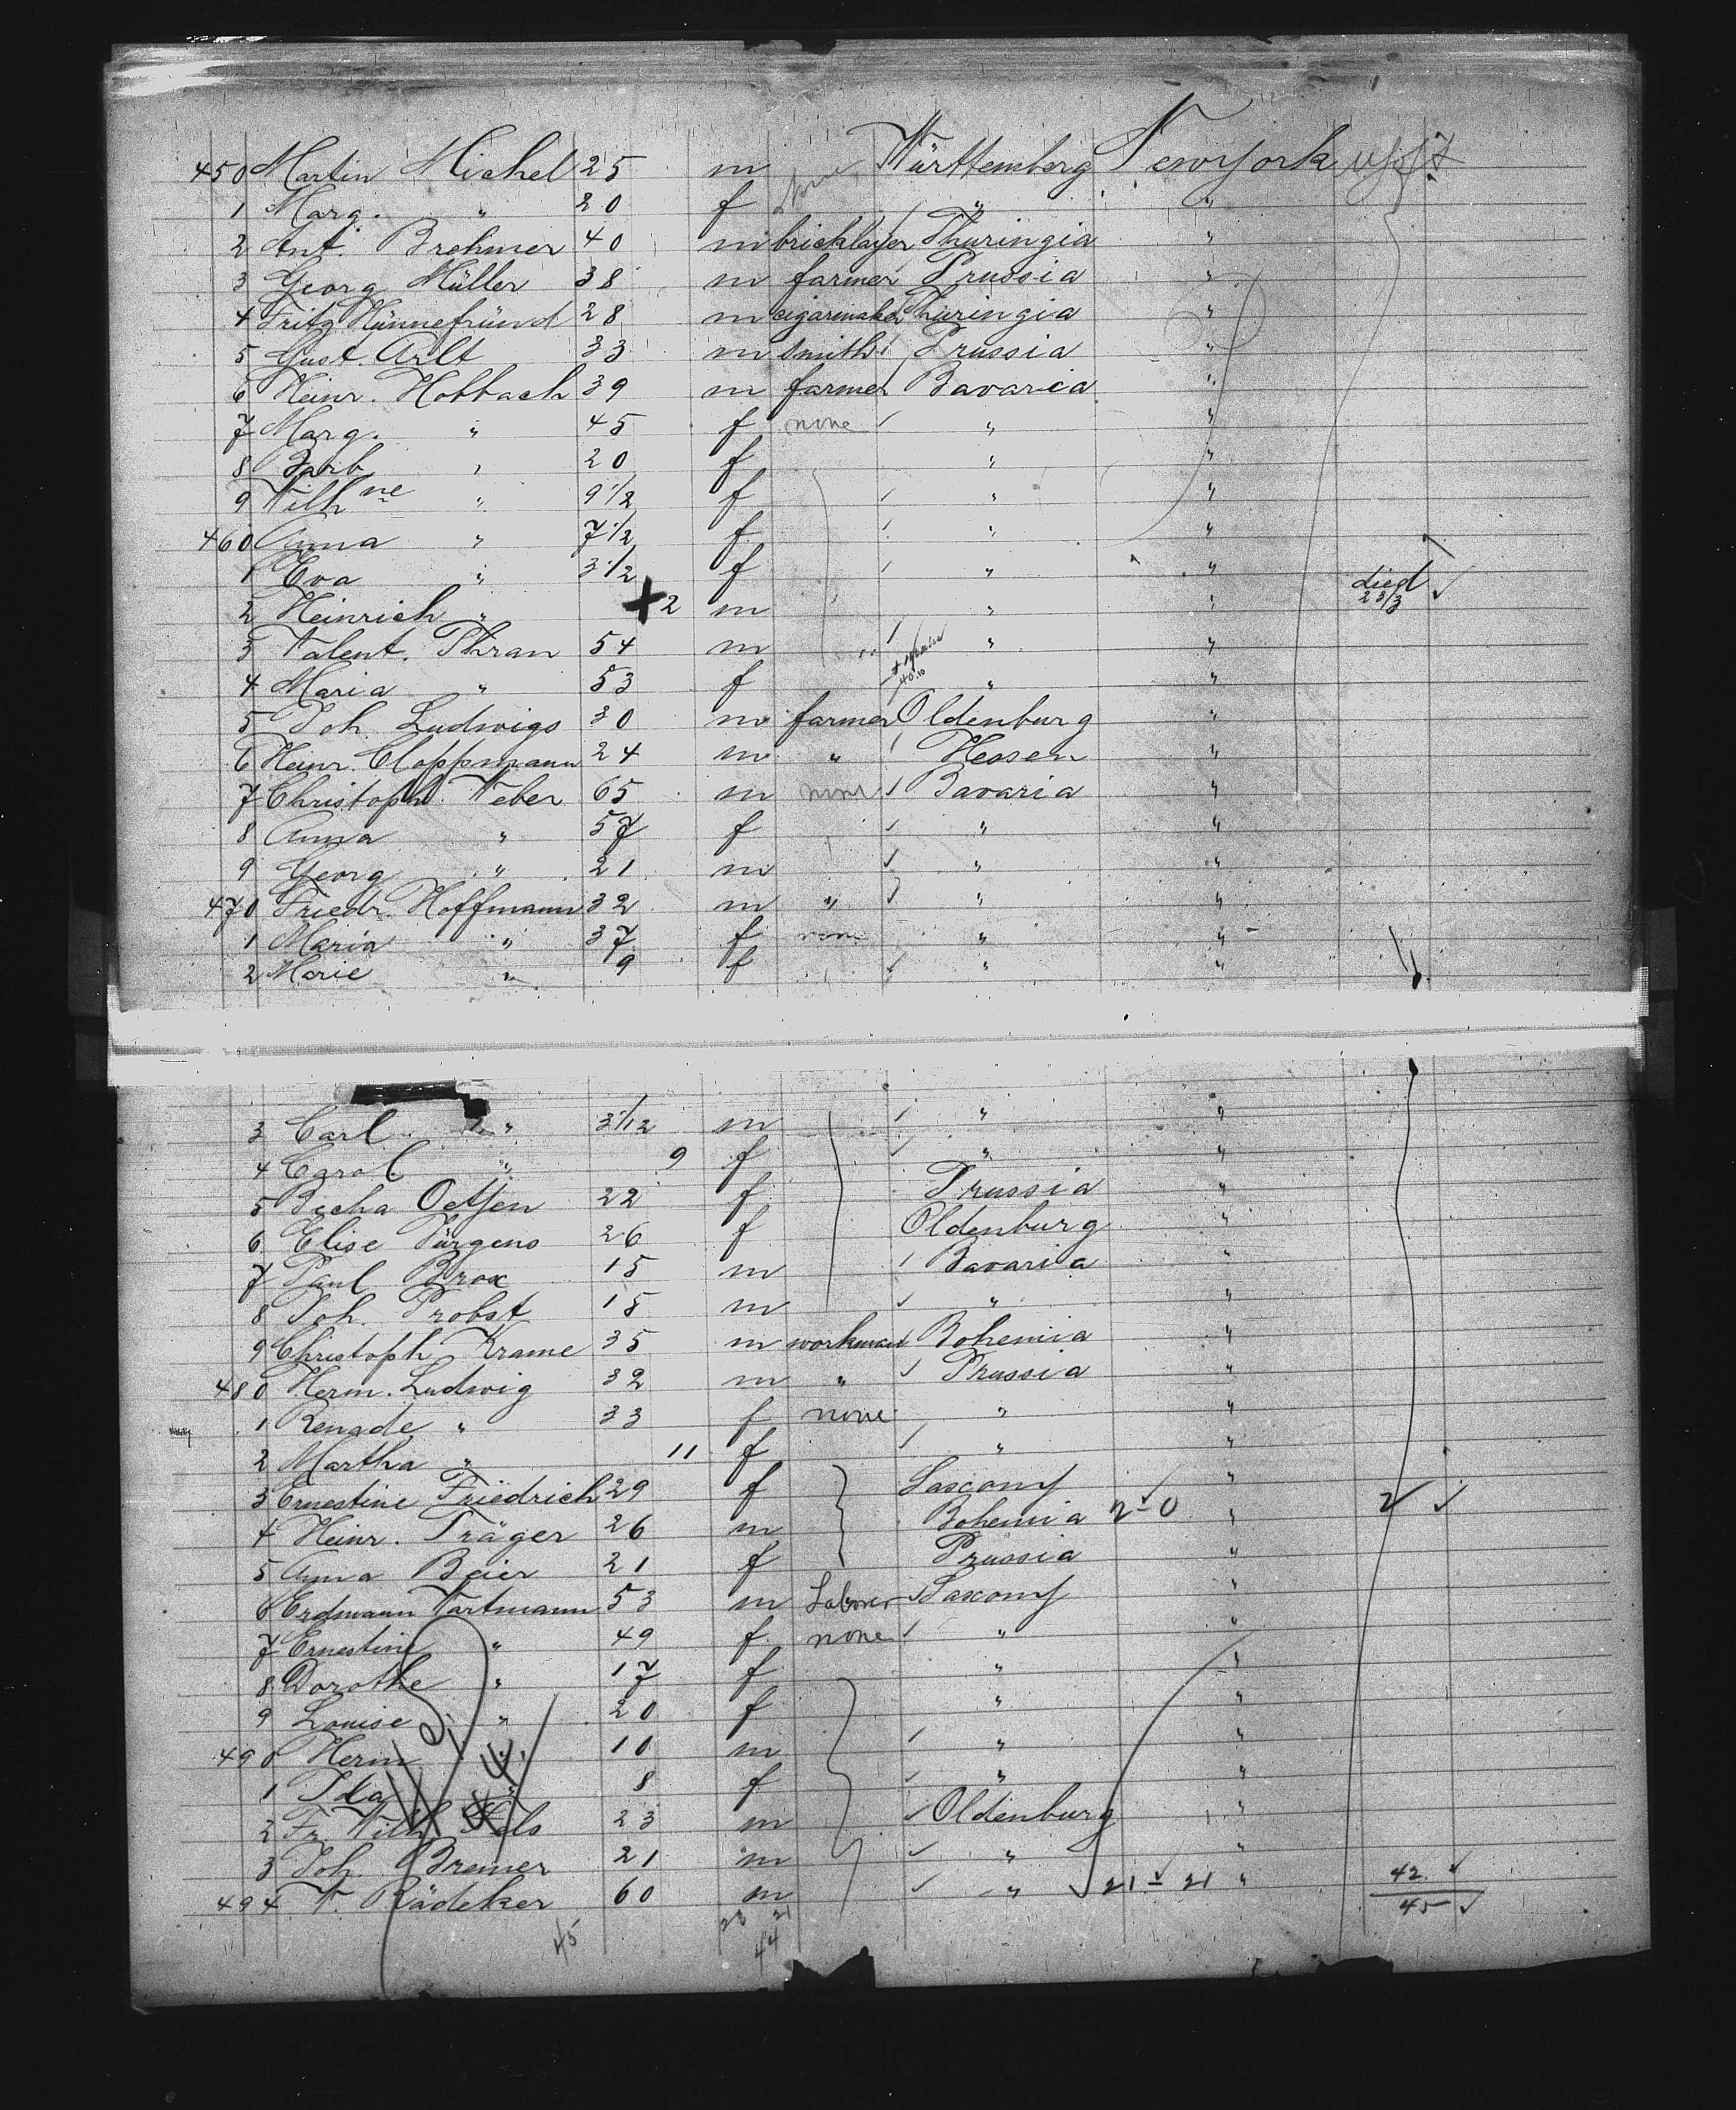 450 Martin Michel 25 m none Württemberg Newyork
1 Marg. " 20 f " "
2 Ant. Brehmer 40 m bricklayer Thuringia "
3 Georg Müller 38 m farmer Prussia "
4 Fritz Hünnefründ 28 m cigarmaker Thüringia "
5 Gust. Arlt 33 m smith Prussia "
6 Heinr. Hobbach 39 m farmer Bavaria "
7 Marg. " 45 f none " "
8 Barb " 20 f " "
9 Wilhne " 9 1/2 f " "
460 Anna " 7 1/2 f " "
1 Eva " 3 1/2 f " "
2 Heinrich " + 2 m " " died 23/3
3 Valent. Thran 54 m " "
4 Maria " 53 f " "
5 Joh. Ludwigs 30 m farmer Oldenburg "
6 Heinr. Cloppmann 24 m " Hessen "
7 Christoph. Weber 65 m none Bavaria "
8 Anna " 57 f " "
9 Georg " 21 m " "
470 Friedr. Hoffmann 32 m " " "
1 Maria " 37 f none " "
2 Marie " 9 f " "
3 Carl " 3 1/2 m " "
4 Carol. " 9 f " "
5 Becha Oetjen 22 f Prussia "
6 Elise Jürgens 26 f Oldenburg "
7 Paul Brox 15 m Bavaria "
8 Joh. Probst 15 m " "
9 Christoph Krame 35 m workman Bohemia "
480 Herm. Ludwig 32 m " Prussia "
1 Renade " 33 f none " "
2 Martha " 11 f " "
3 Ernestine Friedrich 29 f Saxony "
4 Heinr. Träger 26 m Bohemia 2-0 " 2
5 Anna Beier 21 f Prussia "
6 Erdmann Wartmann 53 m Laborer Saxony "
7 Ernestine " 49 f none " "
8 Dorothe " 17 f " "
9 Louise " 20 f " "
490 Herm " 10 m " "
1 Ida " 8 f " "
2 Fr. Wilh. 23 m Oldenburg "
3 Joh. Bremer 21 m " "
494 W. Rädeker 60 m " 21-21 " 42
45 23 21 45
44